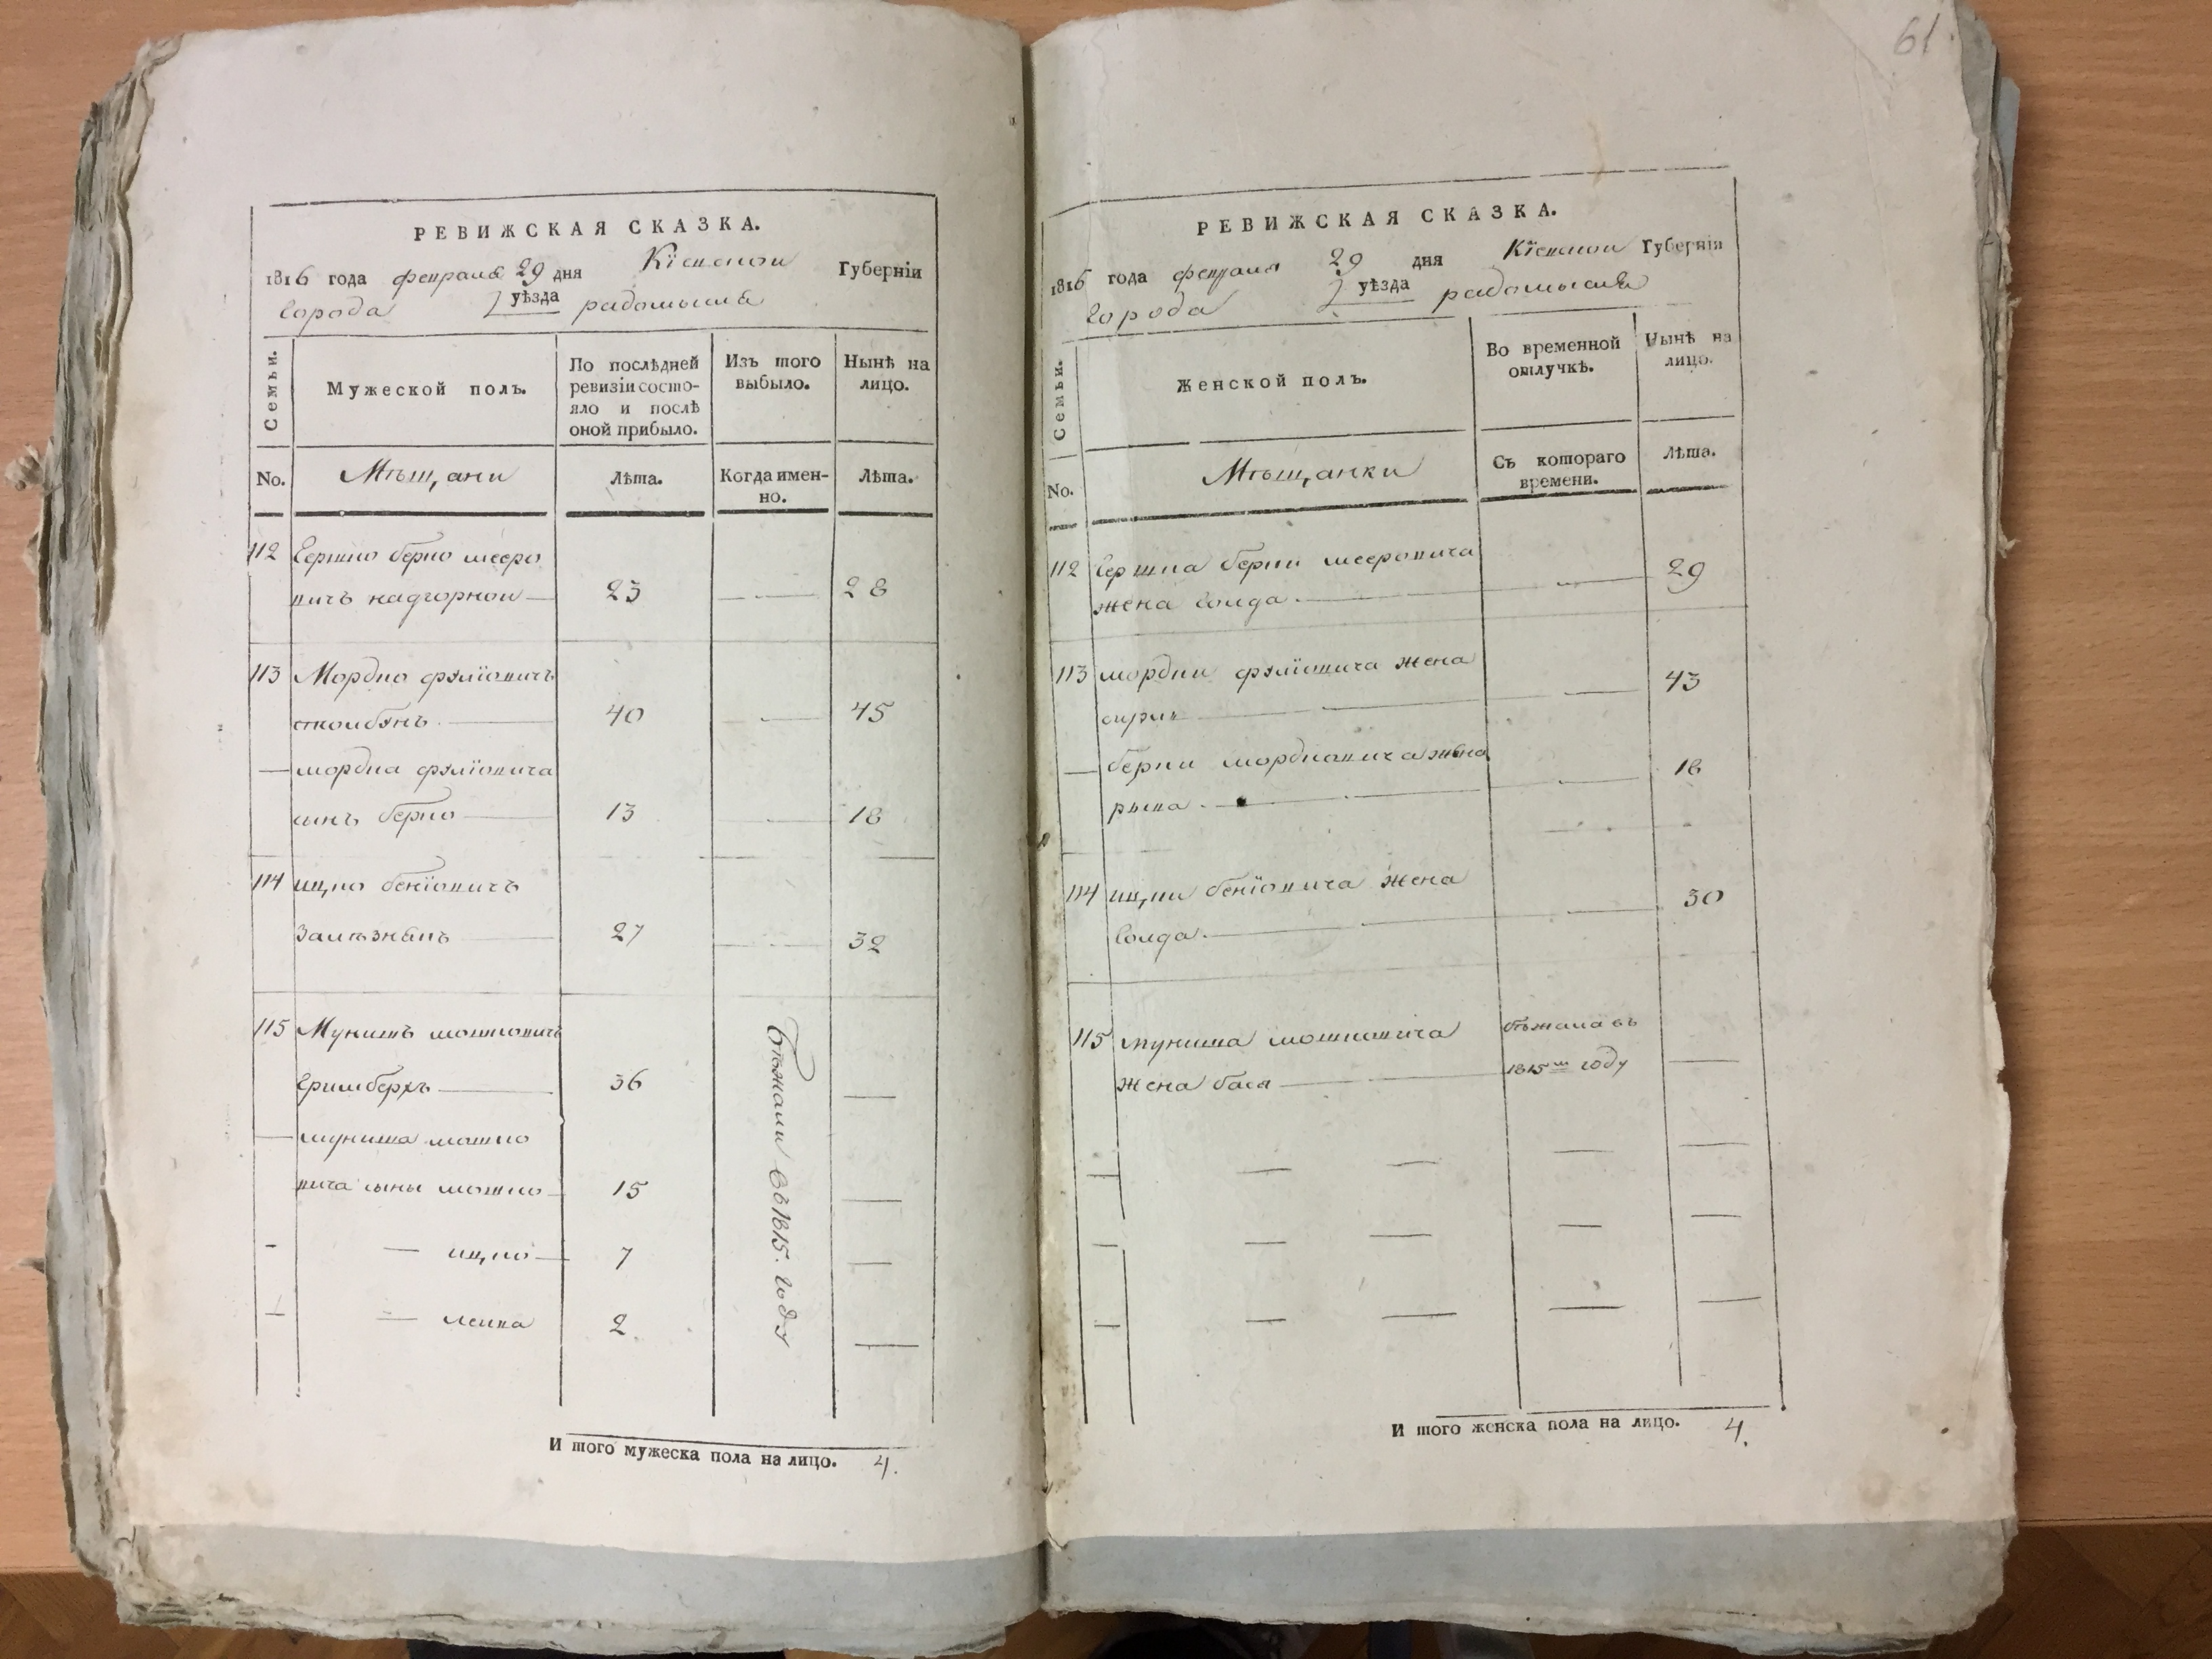 РЕВИЖСКАЯ СКАЗКА.
1816 года февраля 29 дня Кіевской Губерніи
города уѣзда радомысля
Семьи.
Мужеской полъ.
По послѣдней ревизіи состояло и послѣ оной прибыло.
Изъ того выбыло.
Нынѣ на лицо.
No.
Мѣщани
Лѣта.
Когда именно.
Лѣта.
112 Гершко берко мееро
вичъ надгорной 23 28
113 Мордко
40 45
мордка
сынъ берко 13 18
114 ицко беніовичъ
27 32
115 Мунишъ мошковичъ
гримберхъ 36
муниша мошко
вича сыны мошко 15
ицко 7
лейка 2
Бѣжали въ 1815. году
И того мужеска пола на лицо. 4.
61.
РЕВИЖСКАЯ СКАЗКА.
1816 года февраля 29 дня Кіевской Губерніи
города уѣзда радомысля
Семьи.
Женской полъ.
Во временной отлучкѣ.
Нынѣ на лицо.
No.
Мѣщанки
Съ котораго времени.
Лѣта.
112 Гершка берки мееровича
жена голда 29
113 мордки жена
43
берки мордковича жена
18
114 ицки беніовича жена
голда 30
115 муниша мошковича
жена бася
бѣжала въ
1815м году
И того женска пола на лицо. 4.